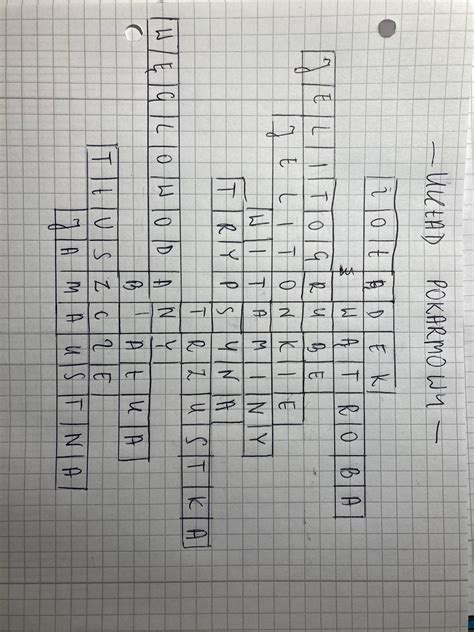 — UKŁAD POKARMOWY —
ŻOŁĄDEK
WĄTROBA
JELITOGRUBE
JELITONKIE
WITAMINY
TRYPSYNA
TRZUSTKA
WĘGLOWODANY
BIAŁKA
TŁUSZCZE
JAMAUSTNA